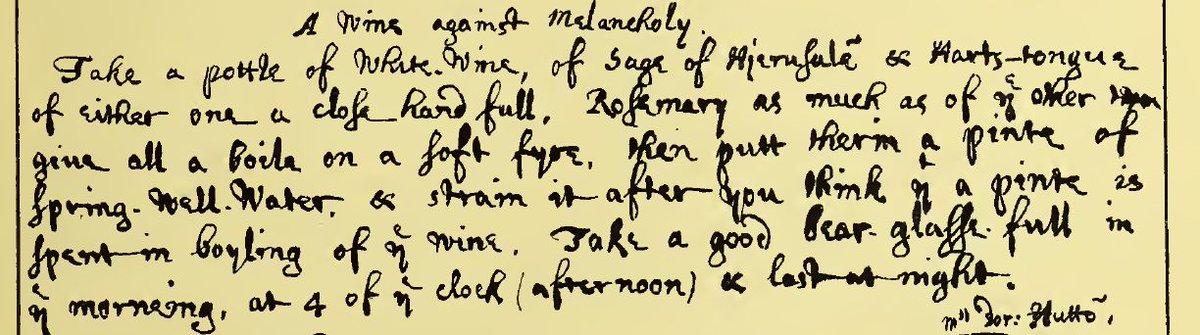 A Wine against Melancholy.
Take a pottle of White-Wine, of Sage of Hjerusalē & Harts-tongue
of either one a close hand full, Rosemary as much as of yͤ other
give all a boile on a soft fyre, then putt therin a pinte of
spring-Well-Water, & strain it after you think yͭ a pinte is
spent in boyling of yͤ wine. Take a good bear-glasse-full in
yͤ morneing, at 4 of yͤ clock (afternoon) & last at night.
Dor: Huttō.